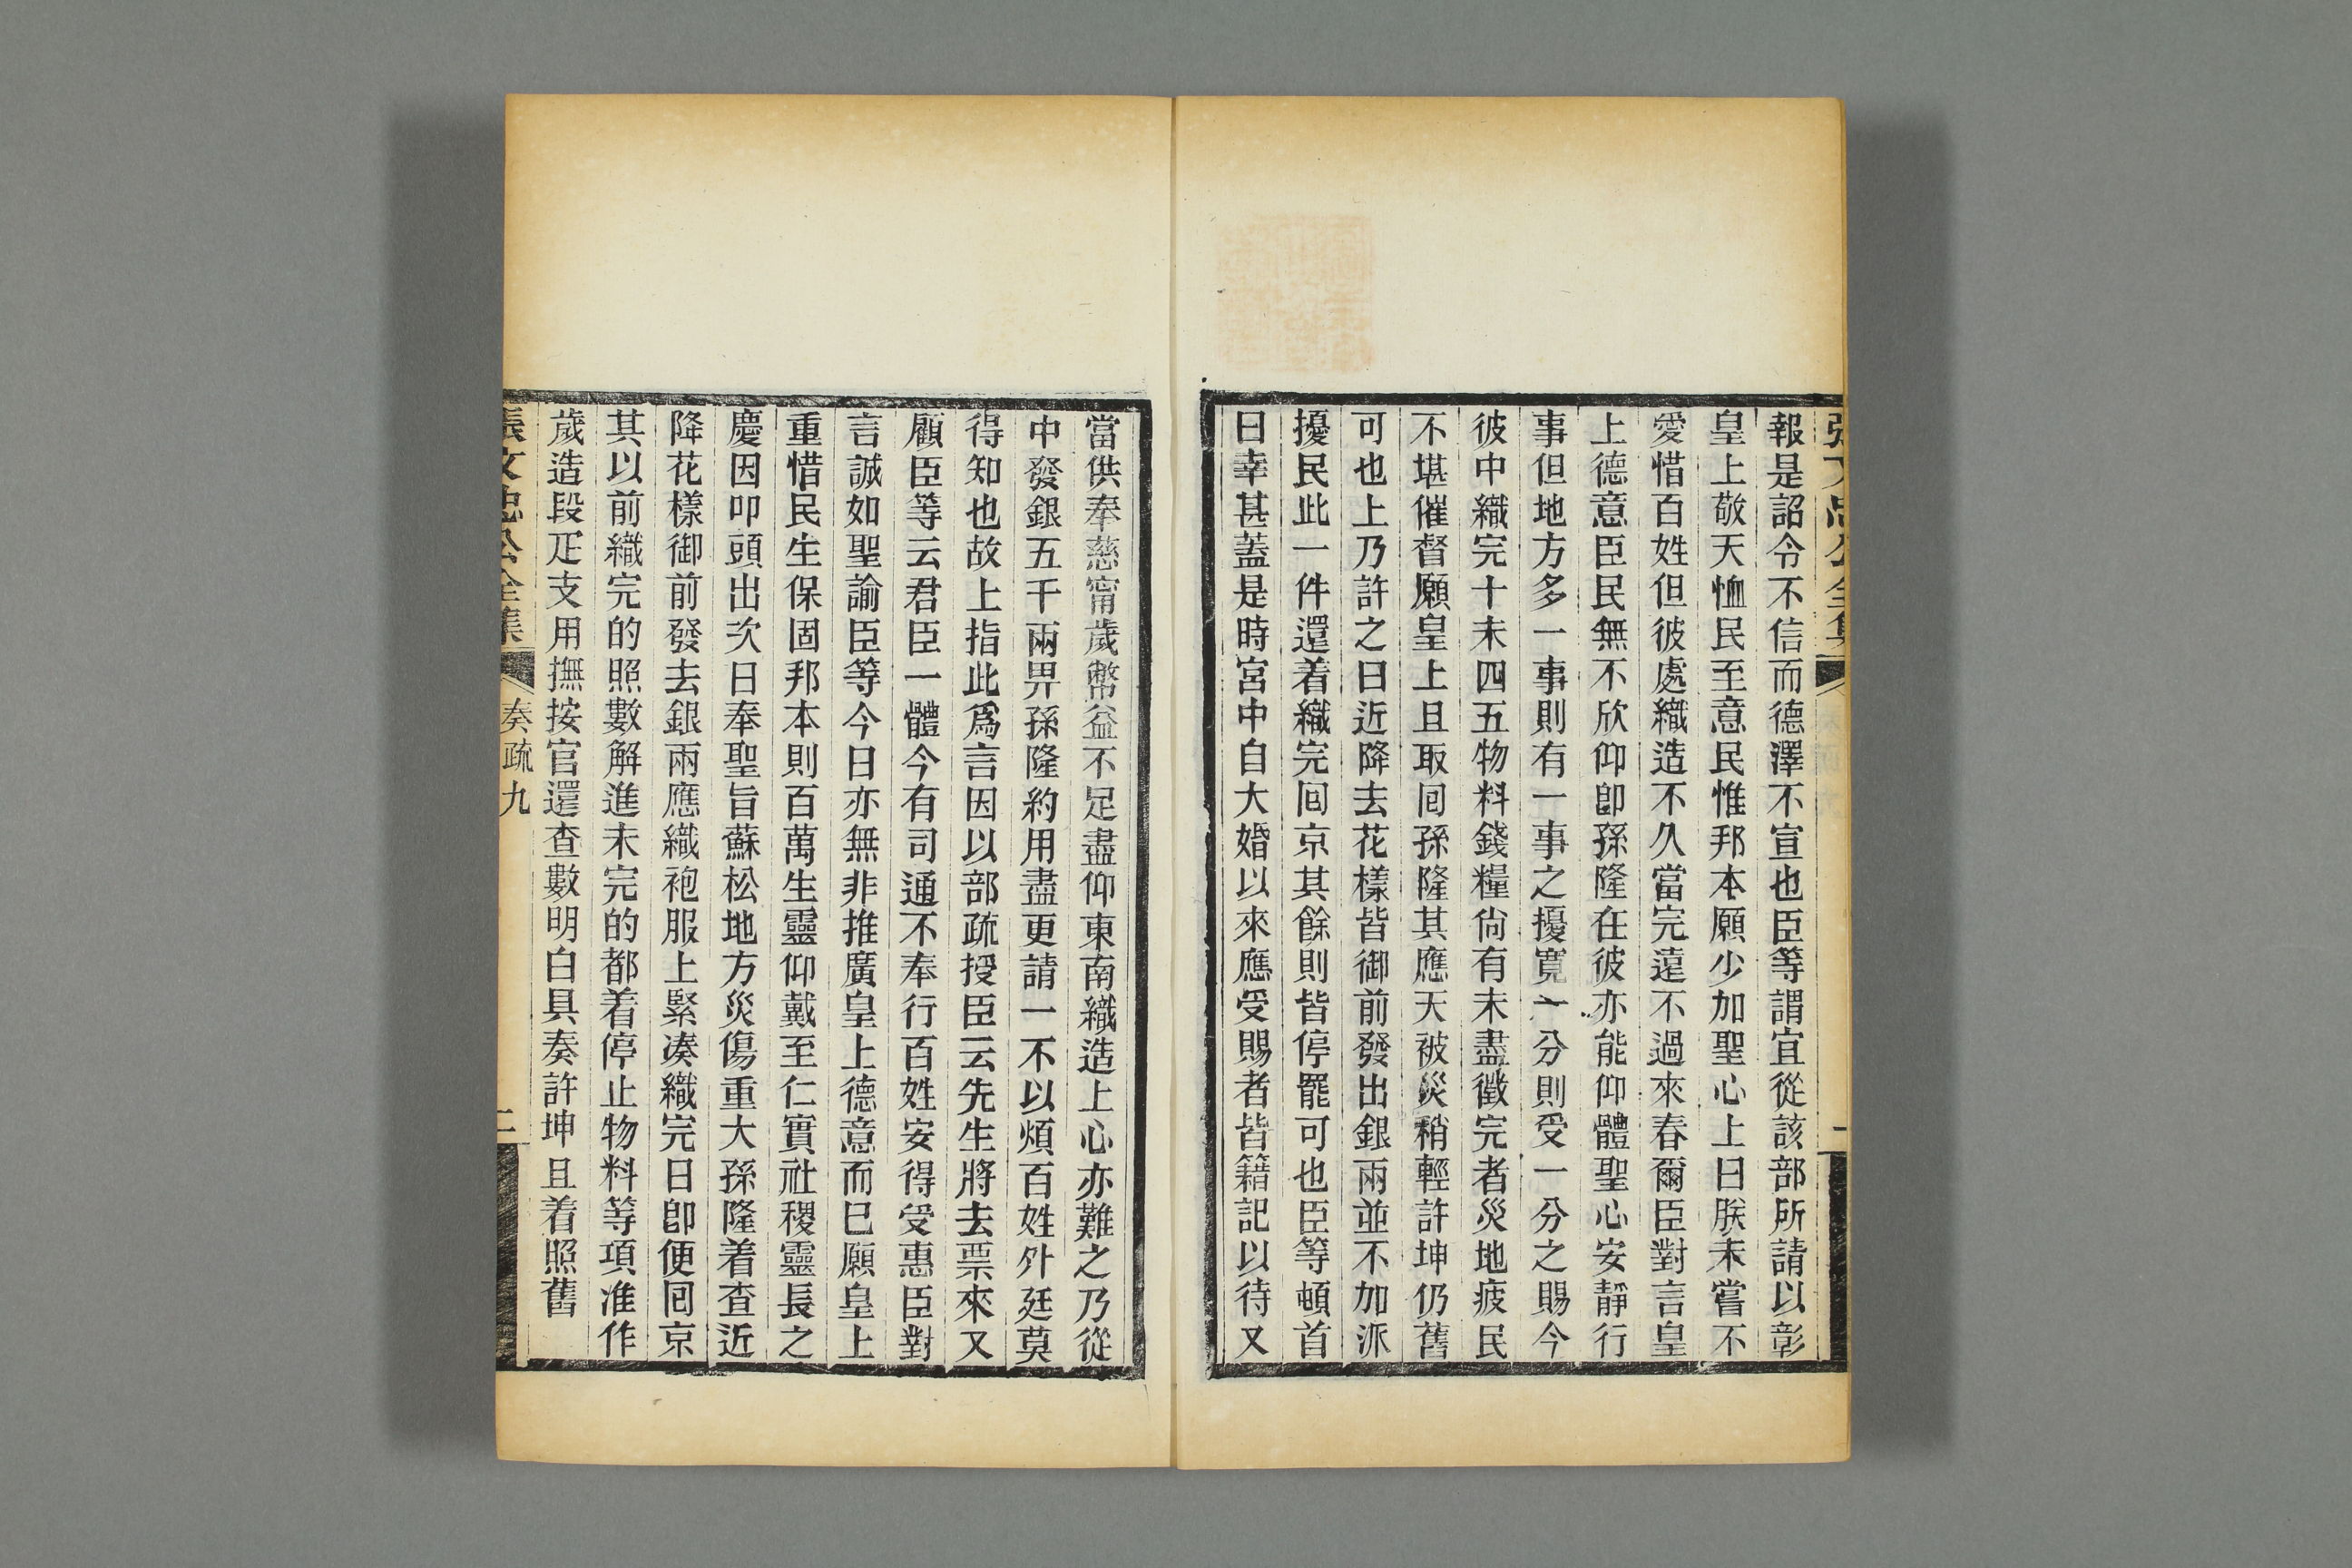 張文忠公全集
一
報是詔令不信而德澤不宣也臣等謂宜從該部所請以彰
皇上敬天恤民至意民惟邦本願少加聖心上曰朕未嘗不
愛惜百姓但彼處織造不久當完遠不過來春爾臣對言皇
上德意臣民無不欣仰卽孫隆在彼亦能仰體聖心安靜行
事但地方多一事則有一事之擾寬一分則受一分之賜今
彼中織完十未四五物料錢糧尙有未盡徵完者災地疲民
不堪催督願皇上且取囘孫隆其應天被災稍輕許坤仍舊
可也上乃許之曰近降去花樣皆御前發出銀兩並不加派
擾民此一件還着織完囘京其餘則皆停罷可也臣等頓首
曰幸甚蓋是時宮中自大婚以來應受賜者皆籍記以待又
當供奉慈甯歲幣益不足盡仰東南織造上心亦難之乃從
中發銀五千兩畀孫隆約用盡更請一不以煩百姓外廷莫
得知也故上指此爲言因以部疏授臣云先生將去票來又
顧臣等云君臣一體今有司通不奉行百姓安得受惠臣對
言誠如聖諭臣等今日亦無非推廣皇上德意而已願皇上
重惜民生保固邦本則百萬生靈仰戴至仁實社稷靈長之
慶因叩頭出次日奉聖旨蘇松地方災傷重大孫隆着查近
降花樣御前發去銀兩應織袍服上緊湊織完日卽便囘京
其以前織完的照數解進未完的都着停止物料等項准作
歲造段疋支用撫按官還查數明白具奏許坤且着照舊
張文忠公全集
奏疏九
二